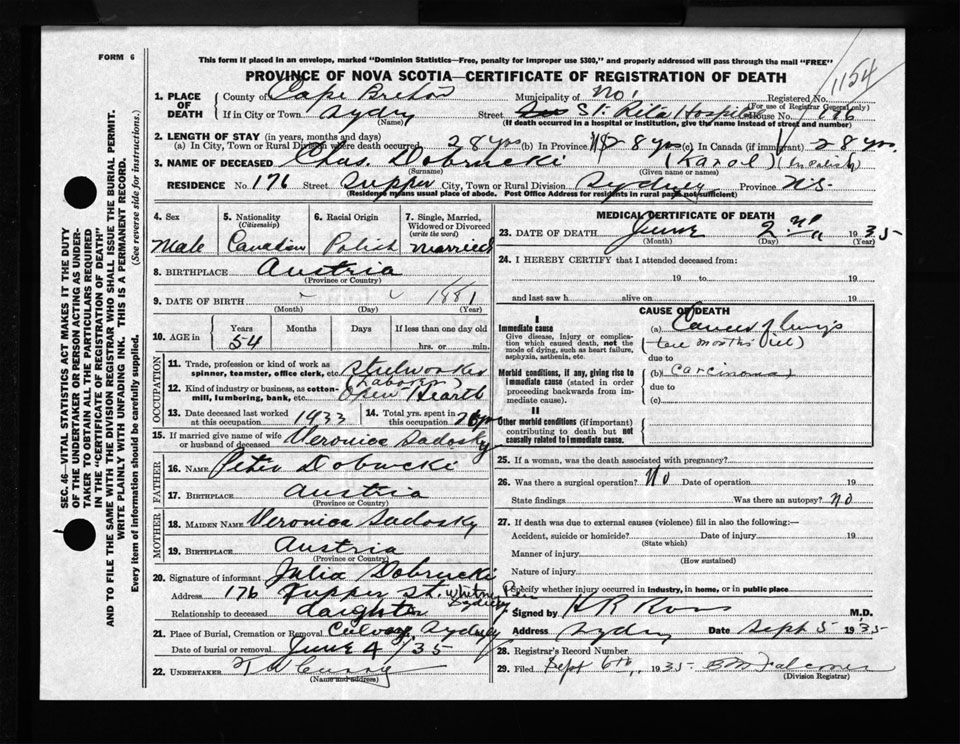 FORM 6
This form if placed in an envelope, marked "Dominion Statistics—Free, penalty for improper use $300," and properly addressed will pass through the mail "FREE"
1154
PROVINCE OF NOVA SCOTIA—CERTIFICATE OF REGISTRATION OF DEATH
1. PLACE OF DEATH
County of Cape Breton Municipality of No. Registered No.
(For use of Registrar General only)
If in City or Town Sydney Street St. Rita Hospital House No.
(Name) (If death occurred in a hospital or institution, give the name instead of street and number)
2. LENGTH OF STAY (in years, months and days)
(a) In City, Town or Rural Division where death occurred 28 yrs (b) In Province NS 28 yrs (c) In Canada (if immigrant) 28 yrs.
3. NAME OF DECEASED Chas. Dobrucki (Karol) (in Polish)
(Surname) (Given name or names)
RESIDENCE No. 176 Street Tupper City, Town or Rural Division Sydney Province N.S.
(Residence means usual place of abode. Post Office Address for residents in rural parts not sufficient)
4. Sex Male
5. Nationality (Citizenship) Canadian
6. Racial Origin Polish
7. Single, Married, Widowed or Divorced (write the word) married
8. BIRTHPLACE Austria
(Province or Country)
9. DATE OF BIRTH 1881
(Month) (Day) (Year)
10. AGE in Years 54 Months Days If less than one day old hrs. or min.
OCCUPATION
11. Trade, profession or kind of work as spinner, teamster, office clerk, etc. Steelworker
(Laborer)
12. Kind of industry or business, as cotton-mill, lumbering, bank, etc. Open Hearth
13. Date deceased last worked at this occupation 1933
14. Total yrs. spent in this occupation
15. If married give name of wife or husband of deceased Veronica Sadosky
FATHER
16. NAME Peter Dobrucki
17. BIRTHPLACE Austria
(Province or Country)
MOTHER
18. MAIDEN NAME Veronica Sadosky
19. BIRTHPLACE Austria
(Province or Country)
20. Signature of informant Julia Dobrucki
Address 176 Tupper St. Whitney Pier Sydney
Relationship to deceased daughter
21. Place of Burial, Cremation or Removal Calvary, Sydney
Date of burial or removal June 4 /35
22. UNDERTAKER T W Curry
(Name and address)
MEDICAL CERTIFICATE OF DEATH
23. DATE OF DEATH June 2nd 1935
(Month) (Day) (Year)
24. I HEREBY CERTIFY that I attended deceased from:
19 to 19
and last saw h alive on 19
CAUSE OF DEATH
I
Immediate cause
Give disease, injury or complication which caused death, not the mode of dying, such as heart failure, asphyxia, asthenia, etc.
(a) Cancer of lungs
due to
Morbid conditions, if any, giving rise to immediate cause (stated in order proceeding backwards from immediate cause).
(b) Carcinoma
due to
(c)
II
Other morbid conditions (if important) contributing to death but not causally related to immediate cause.
25. If a woman, was the death associated with pregnancy?
26. Was there a surgical operation? No Date of operation 19
State findings Was there an autopsy? no
27. If death was due to external causes (violence) fill in also the following:—
Accident, suicide or homicide? Date of injury 19
(State which)
Manner of injury
(How sustained)
Nature of injury
Specify whether injury occurred in industry, in home, or in public place
Signed by H R Ross M.D.
Address Sydney Date Sept 5 1935
28. Registrar's Record Number
29. Filed Sept 6th 1935
(Division Registrar)
SEC. 46—VITAL STATISTICS ACT MAKES IT THE DUTY
OF THE UNDERTAKER OR PERSON ACTING AS UNDER-
TAKER TO OBTAIN ALL THE PARTICULARS REQUIRED
IN THE "CERTIFICATE OF REGISTRATION OF DEATH"
AND TO FILE THE SAME WITH THE DIVISION REGISTRAR WHO SHALL ISSUE THE BURIAL PERMIT.
WRITE PLAINLY WITH UNFADING INK. THIS IS A PERMANENT RECORD.
Every item of information should be carefully supplied. (See reverse side for instructions.)